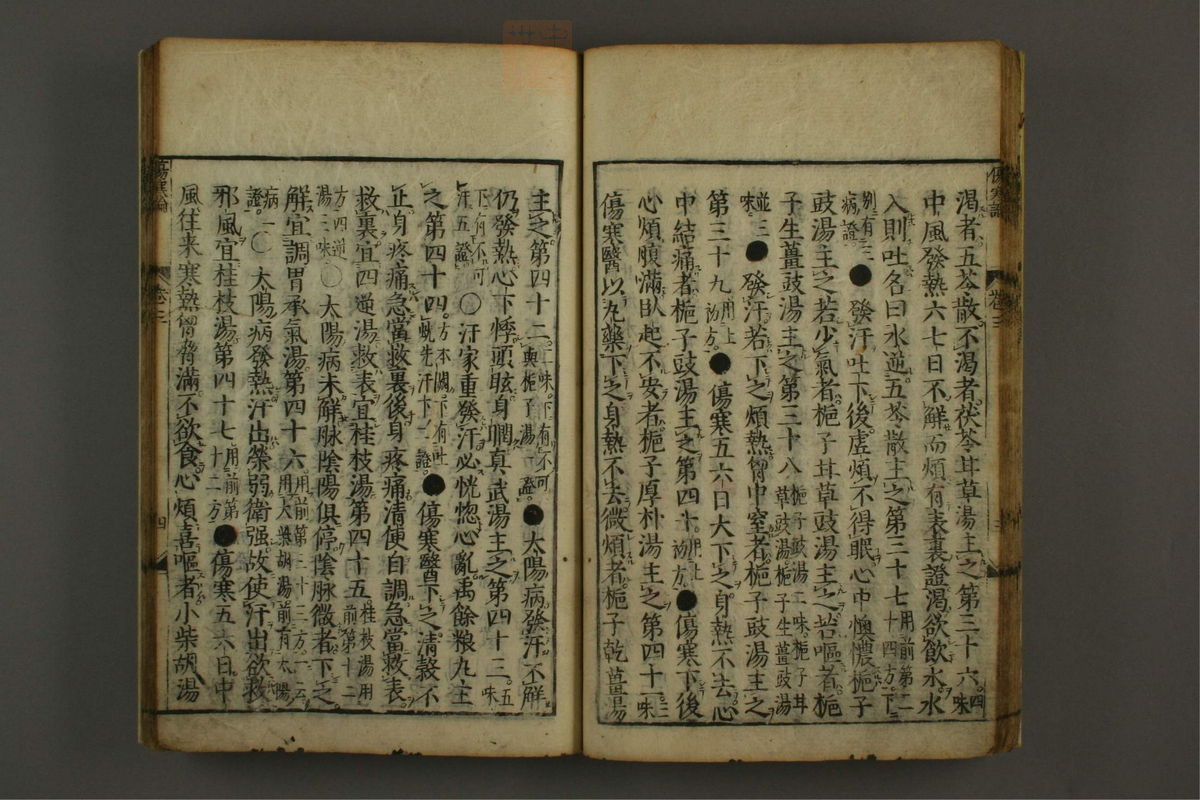 渴者五苓散不渴者茯苓甘草湯主之第三十六四味
中風發熱六七日不解而煩有表裏證渴欲飲水水
入則吐名曰水逆五苓散主之第三十七用前第二十四方下
別有三病證●發汗吐下後虛煩不得眠心中懊憹梔子
豉湯主之若少氣者梔子甘草豉湯主之若嘔者梔
子生薑豉湯主之第三十八梔子豉湯二味梔子甘草豉湯梔子生薑豉湯
並三味●發汗若下之煩熱胷中窒者梔子豉湯主之
第三十九用上初方●傷寒五六日大下之身熱不去心
中結痛者梔子豉湯主之第四十用上初方●傷寒下後
心煩腹滿臥起不安者梔子厚朴湯主之第四十一三味
傷寒醫以丸藥下之身熱不去微煩者梔子乾薑湯
主之第四十二二味下有不可與梔子湯一證●太陽病發汗不解
仍發熱心下悸頭眩身瞤真武湯主之第四十三五味
下有不可汗五證○汗家重發汗必恍惚心亂禹餘粮丸主
之第四十四方本闕下有吐蚘先汗下二證●傷寒醫下之清穀不
止身疼痛急當救裏後身疼痛清便自調急當救表
救裏宜四逆湯救表宜桂枝湯第四十五桂枝湯用前第十二
方四逆湯三味○太陽病未解脉陰陽俱停陰脉微者下之
解宜調胃承氣湯第四十六用前第三十三方一云用大柴胡湯前有太陽
病一證○太陽病發熱汗出榮弱衛强故使汗出欲救
邪風宜桂枝湯第四十七用前第十二方●傷寒五六日中
風往来寒熱胷脅滿不欲食心煩喜嘔者小柴胡湯
傷寒論
卷三
四